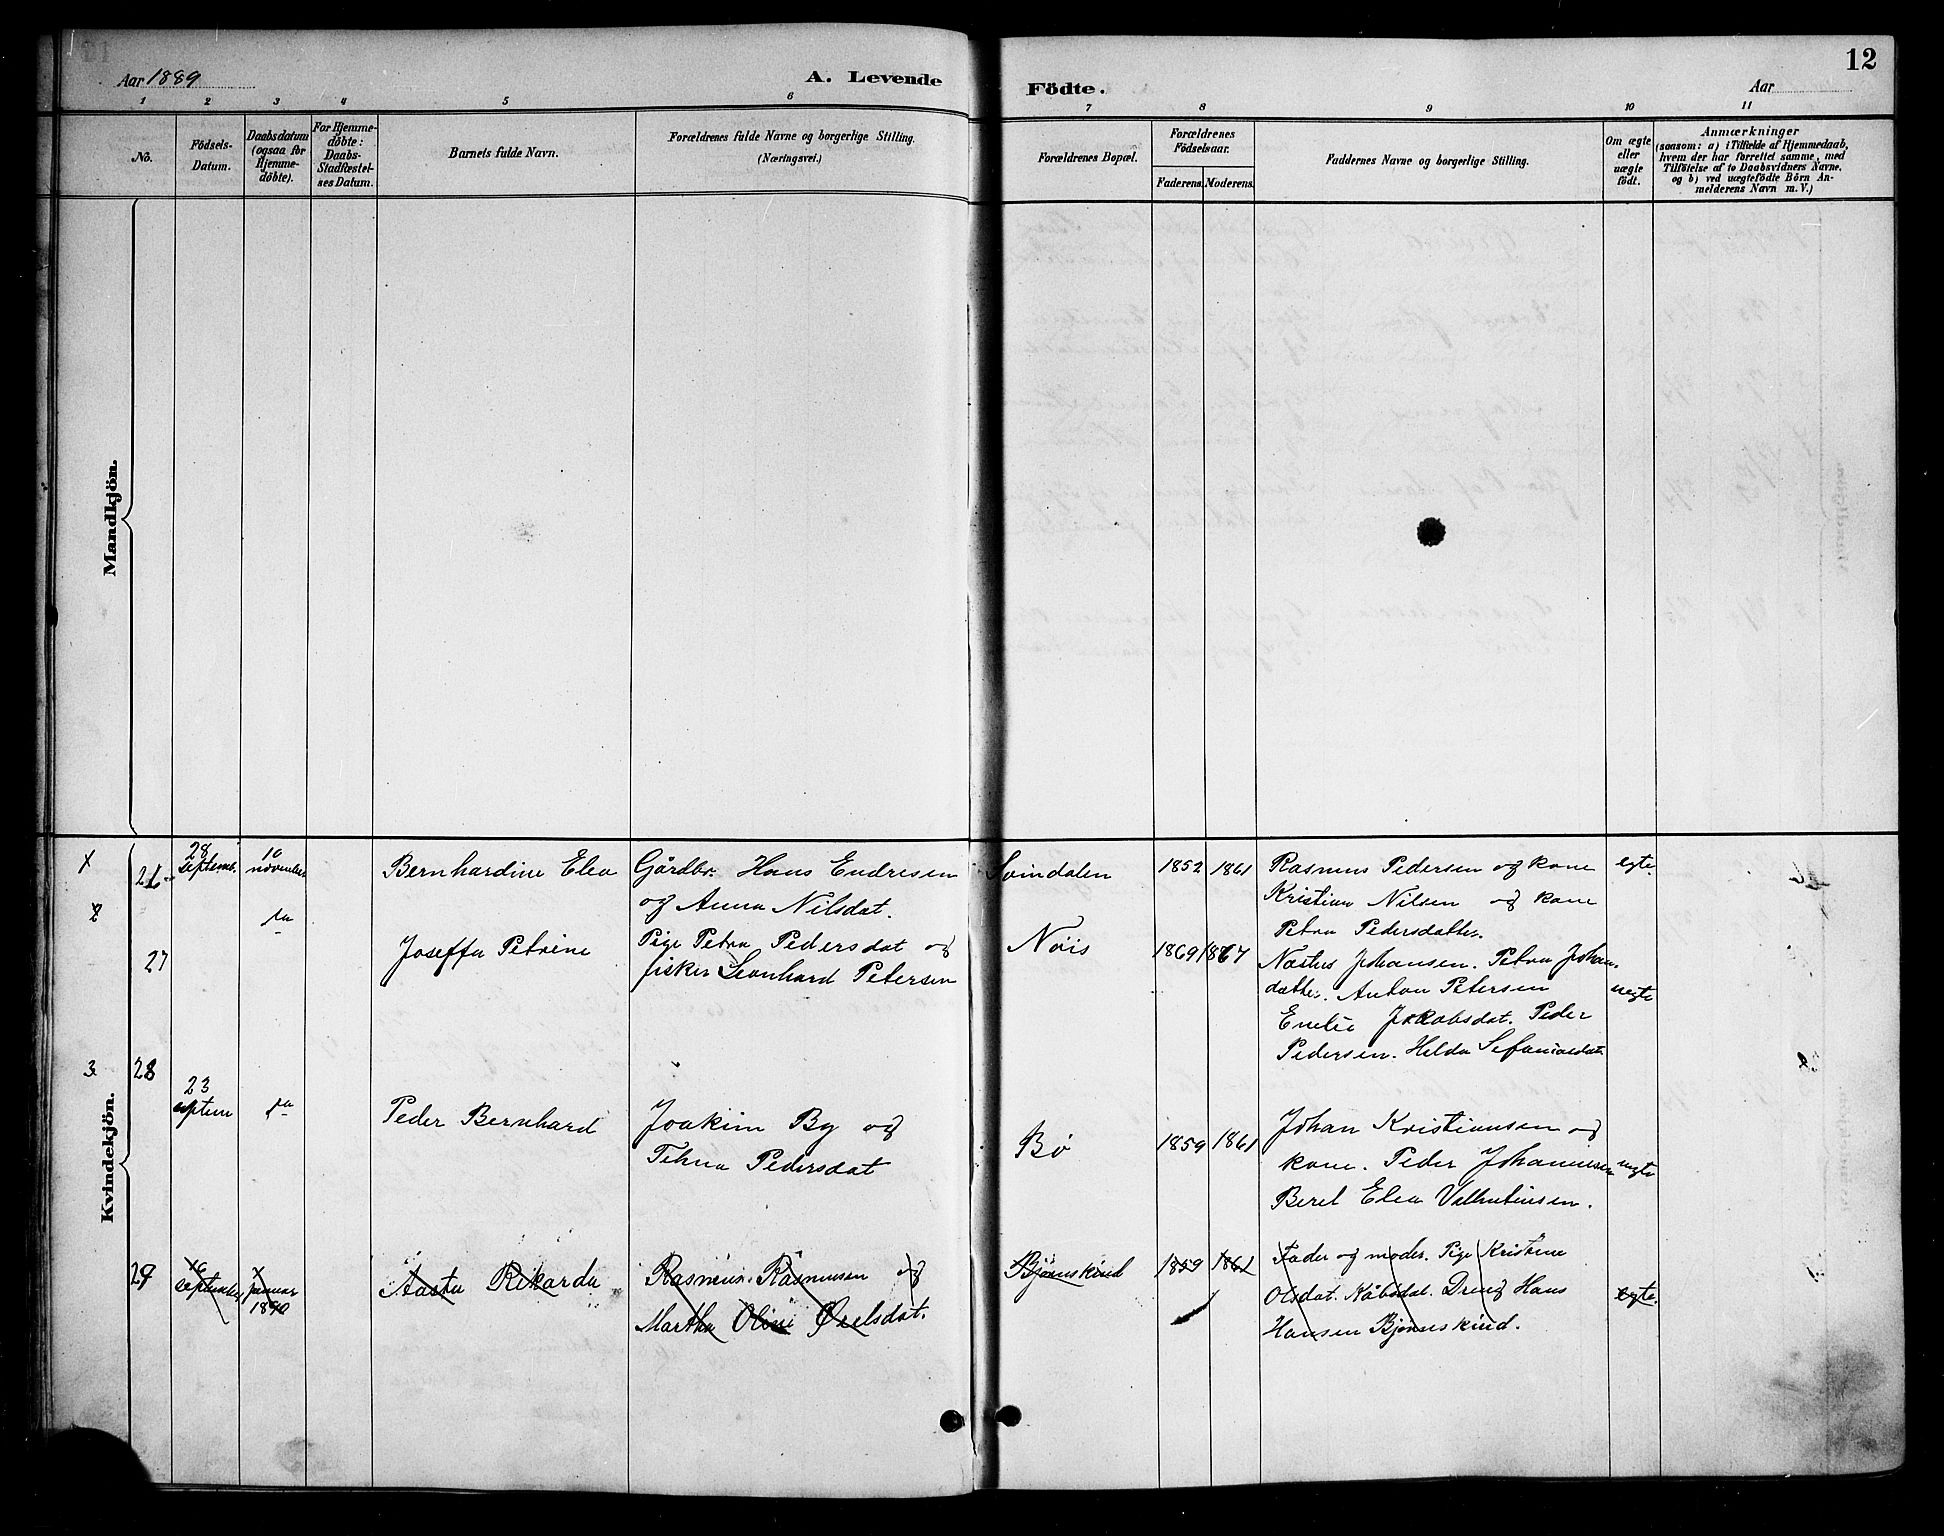 12
Aar 1889
A. Levende
Födte.
Aar
1 2 3 4 5 6 7 8 9 10 11
No.
Födsels-
Datum.
Daabsdatum
(ogsaa for
Hjemme-
döbte).
For Hjemme-
döbte:
Daabs-
Stadfæstel-
ses Datum.
Barnets fulde Navn.
Forældrenes fulde Navne og borgerlige Stilling.
(Næringsvei.)
Forældrenes Bopæl.
Forældrenes
Födselsaar.
Faderens. Moderens.
Faddernes Navne og borgerlige Stilling.
Om ægte
eller
uægte
født.
Anmærkninger
(saasom: a) i Tilfælde af Hjemmedaab,
hvem der har forrettet samme, med
Tilföielse af to Daabsvidners Navne,
og b) ved uægtefödte Börn An-
melderens Navn m. V.)
Mandkjön.
Kvindekjön.
28
septemb.
10
november
Bernhardine Elea
Gårdbr. Hans Endresen
og Anna Nilsdat.
Svindalen
1852 1861
Rasmus Pedersen og kone
Kristian Nilsen og kone
Petra Pedersdatter.
egte.
27
da
Joseffa Petrine
Pige Petra Pedersdat og
fisker Leonhard Petersen
Nöis
1869 1867
Johansen. Petra Johan.
datter. Anton Petersen
Emelie Jakobsdat. Peder
Pedersen. Helda
uegte
3
28
23
septem
da
Peder Bernhard
Joakim By og
Pedersdat
Bø
1859 1861
Johan Kristiansen og
kone. Peder Johannesen
Beret Elea Valentinsen.
uegte
29
16
september
januar
1890
Aasta Rikarda
Rasmus Rasmussen og
Martha Oline
Bjørnskind
1859 1862
Fader og moder. Pige Kristine
Olsdat. Dreng Hans
Hansen Bjørnskind.
egte.